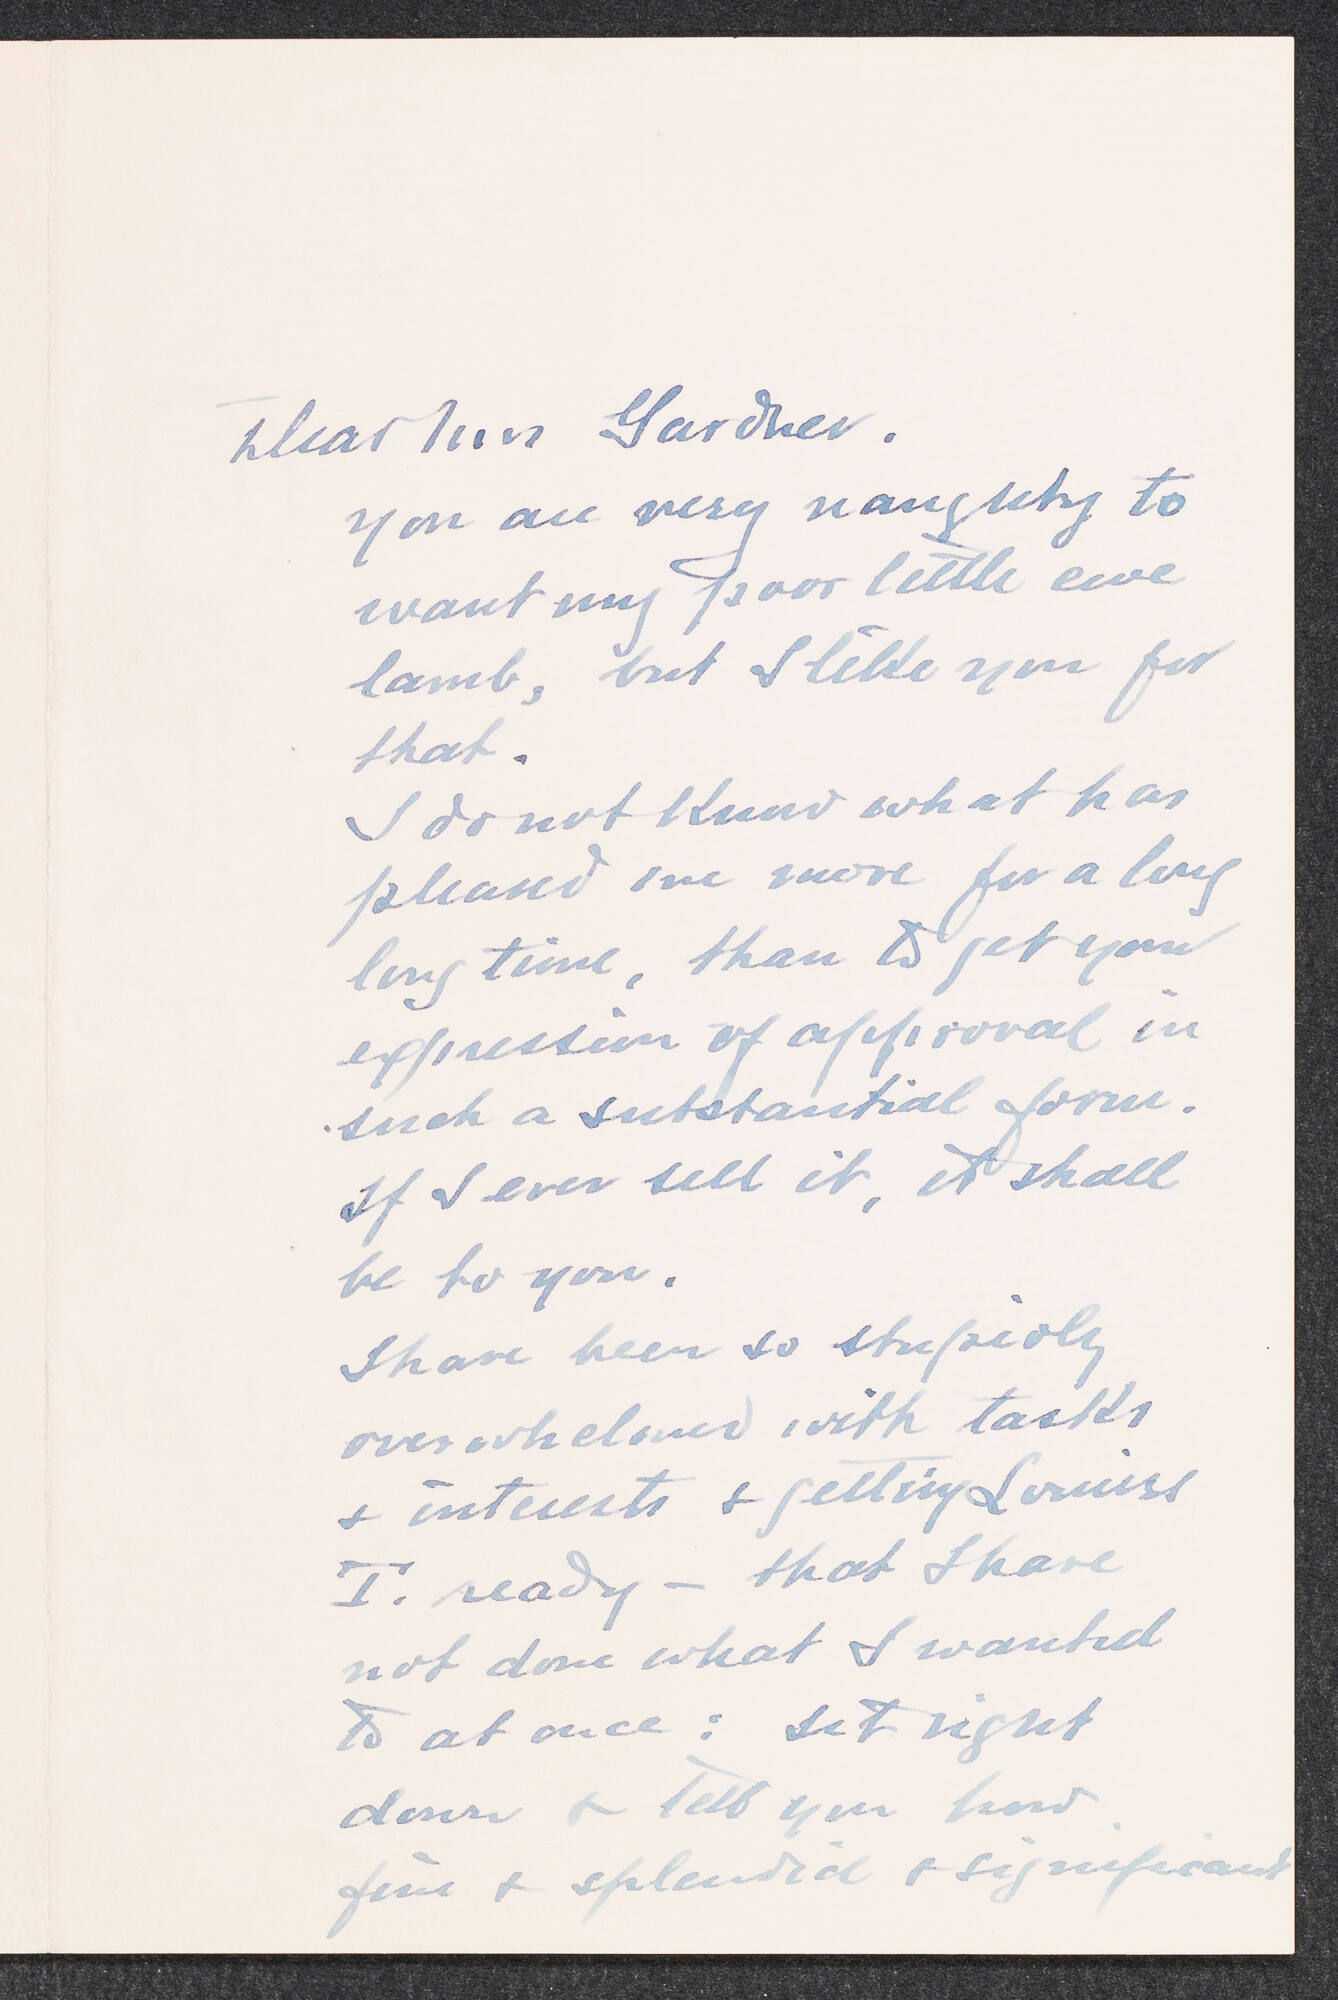 Dear Mrs Gardner.
You are very naughty to
want my poor little ewe
lamb, but I like you for
that.
I do not know what has
pleased me more for a long
long time, than to get your
expression of approval in
such a substantial form.
If I ever sell it, it shall
be to you.
I have been so stupidly
overwhelmed with tasks
& interests & getting Louise
T. ready – that I have
not done what I wanted
to at once: set right
down & tell you how
fine & splendid & significant